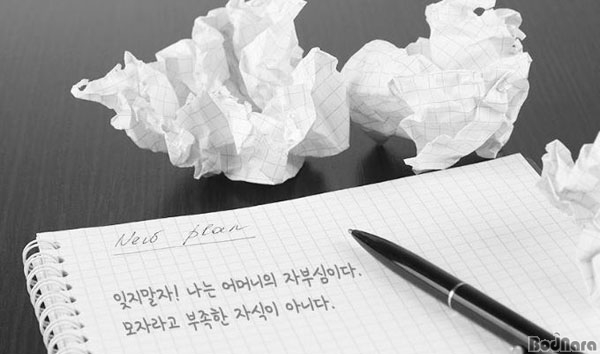 New plan
잊지말자! 나는 어머니의 자부심이다.
모자라고 부족한 자식이 아니다.
BodNara